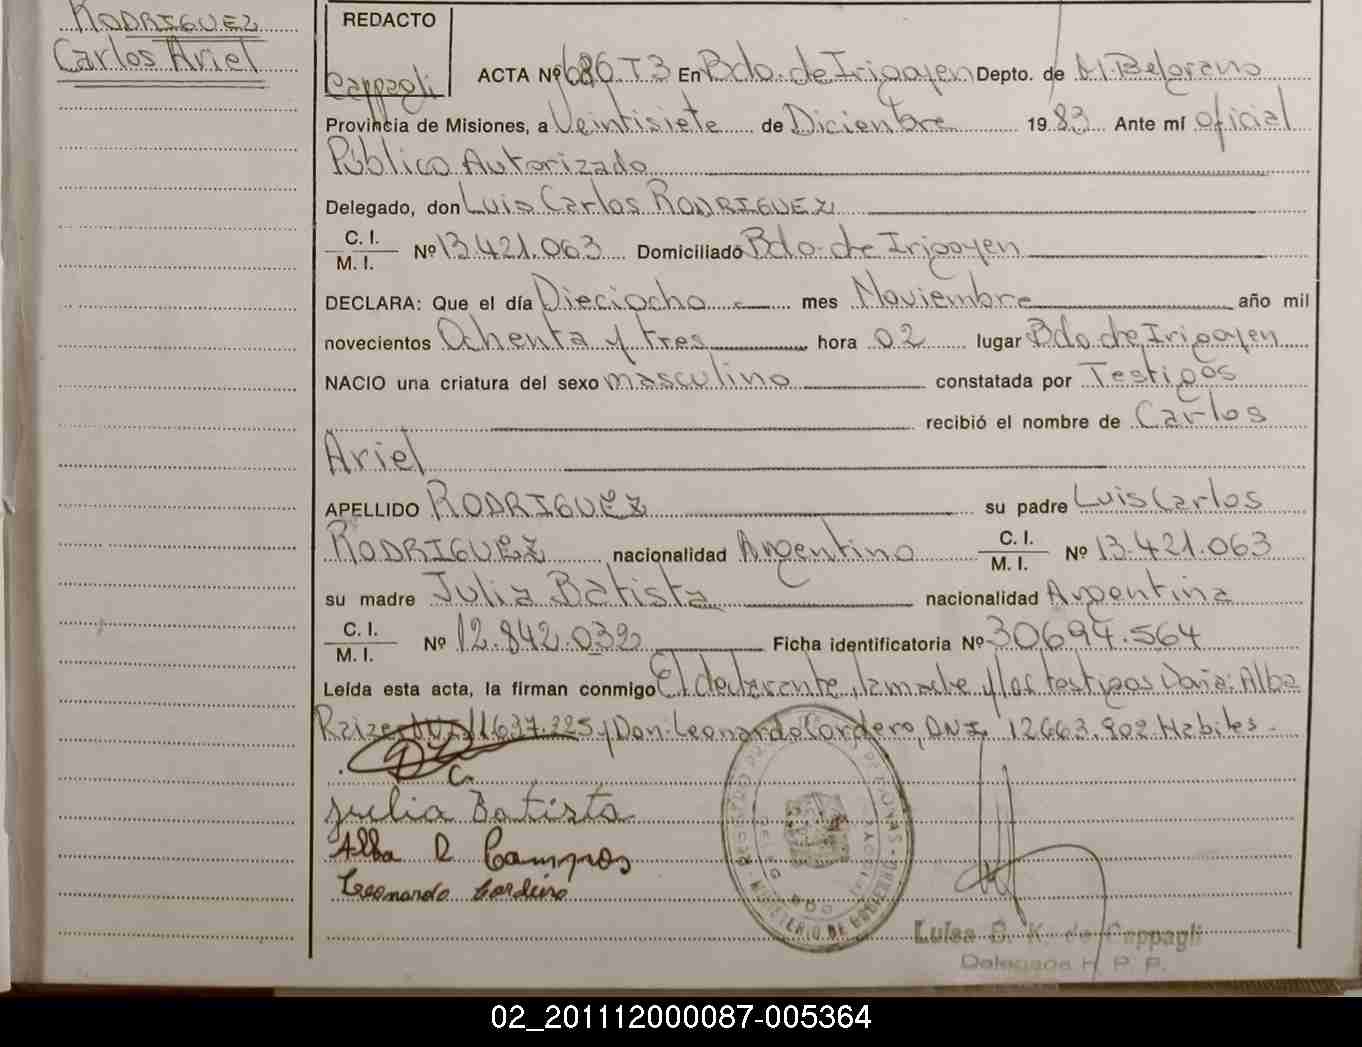 RODRIGUEZ
Carlos Ariel
REDACTO
Cappagli
ACTA Nº 686 T3 En Bdo. de Irigoyen Depto. de M. Belgrano
Provincia de Misiones, a Veintisiete de Diciembre 1983 Ante mí oficial
Público Autorizado
Delegado, don Luis Carlos RODRIGUEZ
C. I.
M. I. Nº 13.421.063 Domiciliado Bdo. de Irigoyen
DECLARA: Que el día Dieciocho mes Noviembre año mil
novecientos Ochenta y tres hora 02 lugar Bdo. de Irigoyen
NACIO una criatura del sexo masculino constatada por Testigos
recibió el nombre de Carlos
Ariel
APELLIDO RODRIGUEZ su padre Luis Carlos
RODRIGUEZ nacionalidad Argentino C. I. M. I. Nº 13.421.063
su madre Julia Batista nacionalidad Argentina
C. I.
M. I. Nº 12.842.032 Ficha identificatoria Nº 30694.564
Leída esta acta, la firman conmigo El declarante, la madre y los testigos Doña: Alba
11.637.225 y Don: Leonardo Cordero, DNI. 12663.902 Habiles.-
Julia Batista
Alba R Campos
Leonardo Cordeiro
MINISTERIO DE GOBIERNO
Luisa B. K. de Cappagli
Delegada R. P. P.
02_201112000087-005364